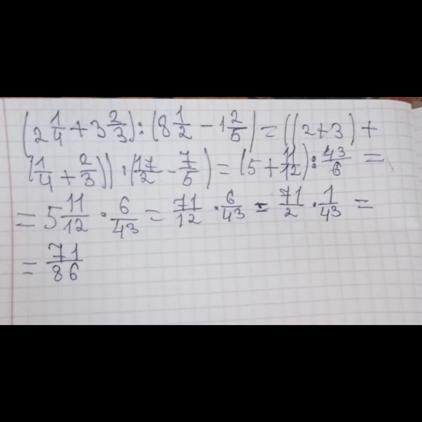 (2 1/4 + 3 2/3) : (8 1/2 - 1 2/5) = ((2+3) +
(1/4 + 2/3)) : (17/2 - 7/5) = (5 + 11/12) : 43/6 =
= 5 11/12 · 6/43 = 71/12 · 6/43 = 71/2 · 1/43 =
= 71/86